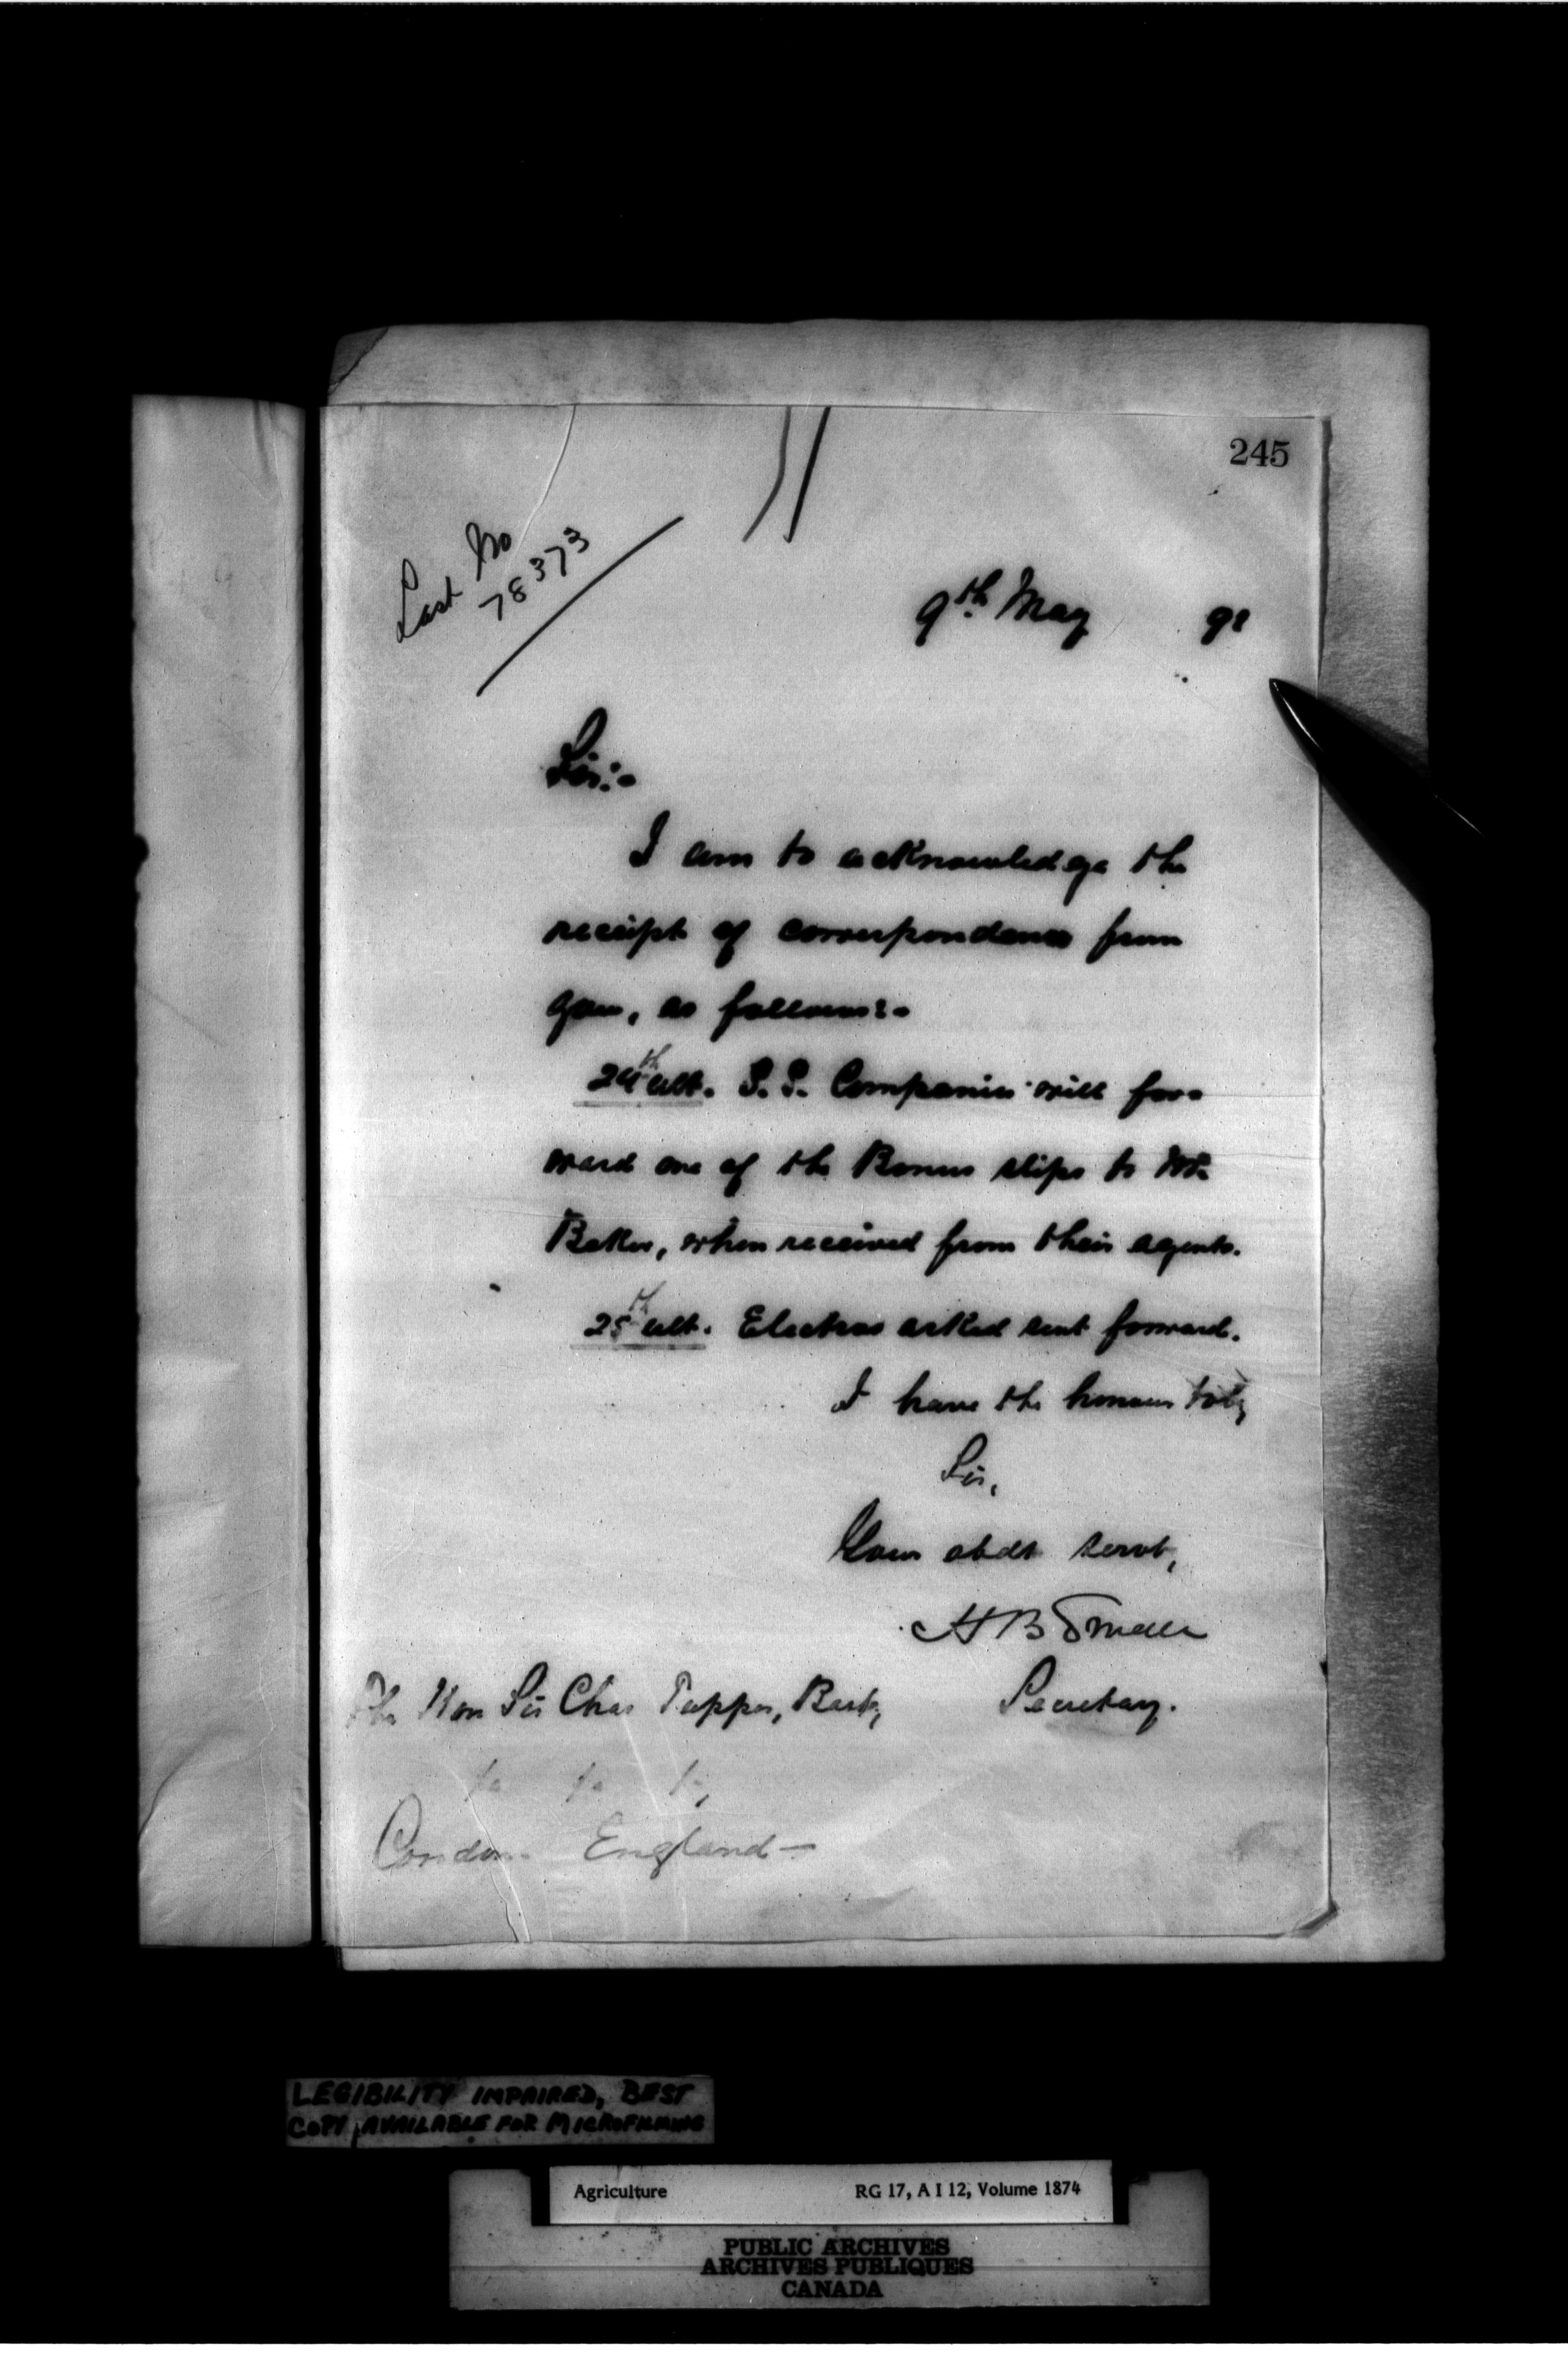 245
Last No
78373
9th May 91
Sir:-
I am to acknowledge the
receipt of correspondence from
you, as follows:-
24th ult. S.S. Companies will for-
ward one of the Bonus slips to Mr.
Baker, when received from their agents.
25th ult. Electros asked sent forward.
I have the honour to be,
Sir,
Your obdt servt,
H B Small
Secretary.
The Hon Sir Chas Tupper, Bart,
London England—
LEGIBILITY IMPAIRED, BEST
COPY AVAILABLE FOR MICROFILMING
Agriculture RG 17, A I 12, Volume 1874
PUBLIC ARCHIVES
ARCHIVES PUBLIQUES
CANADA